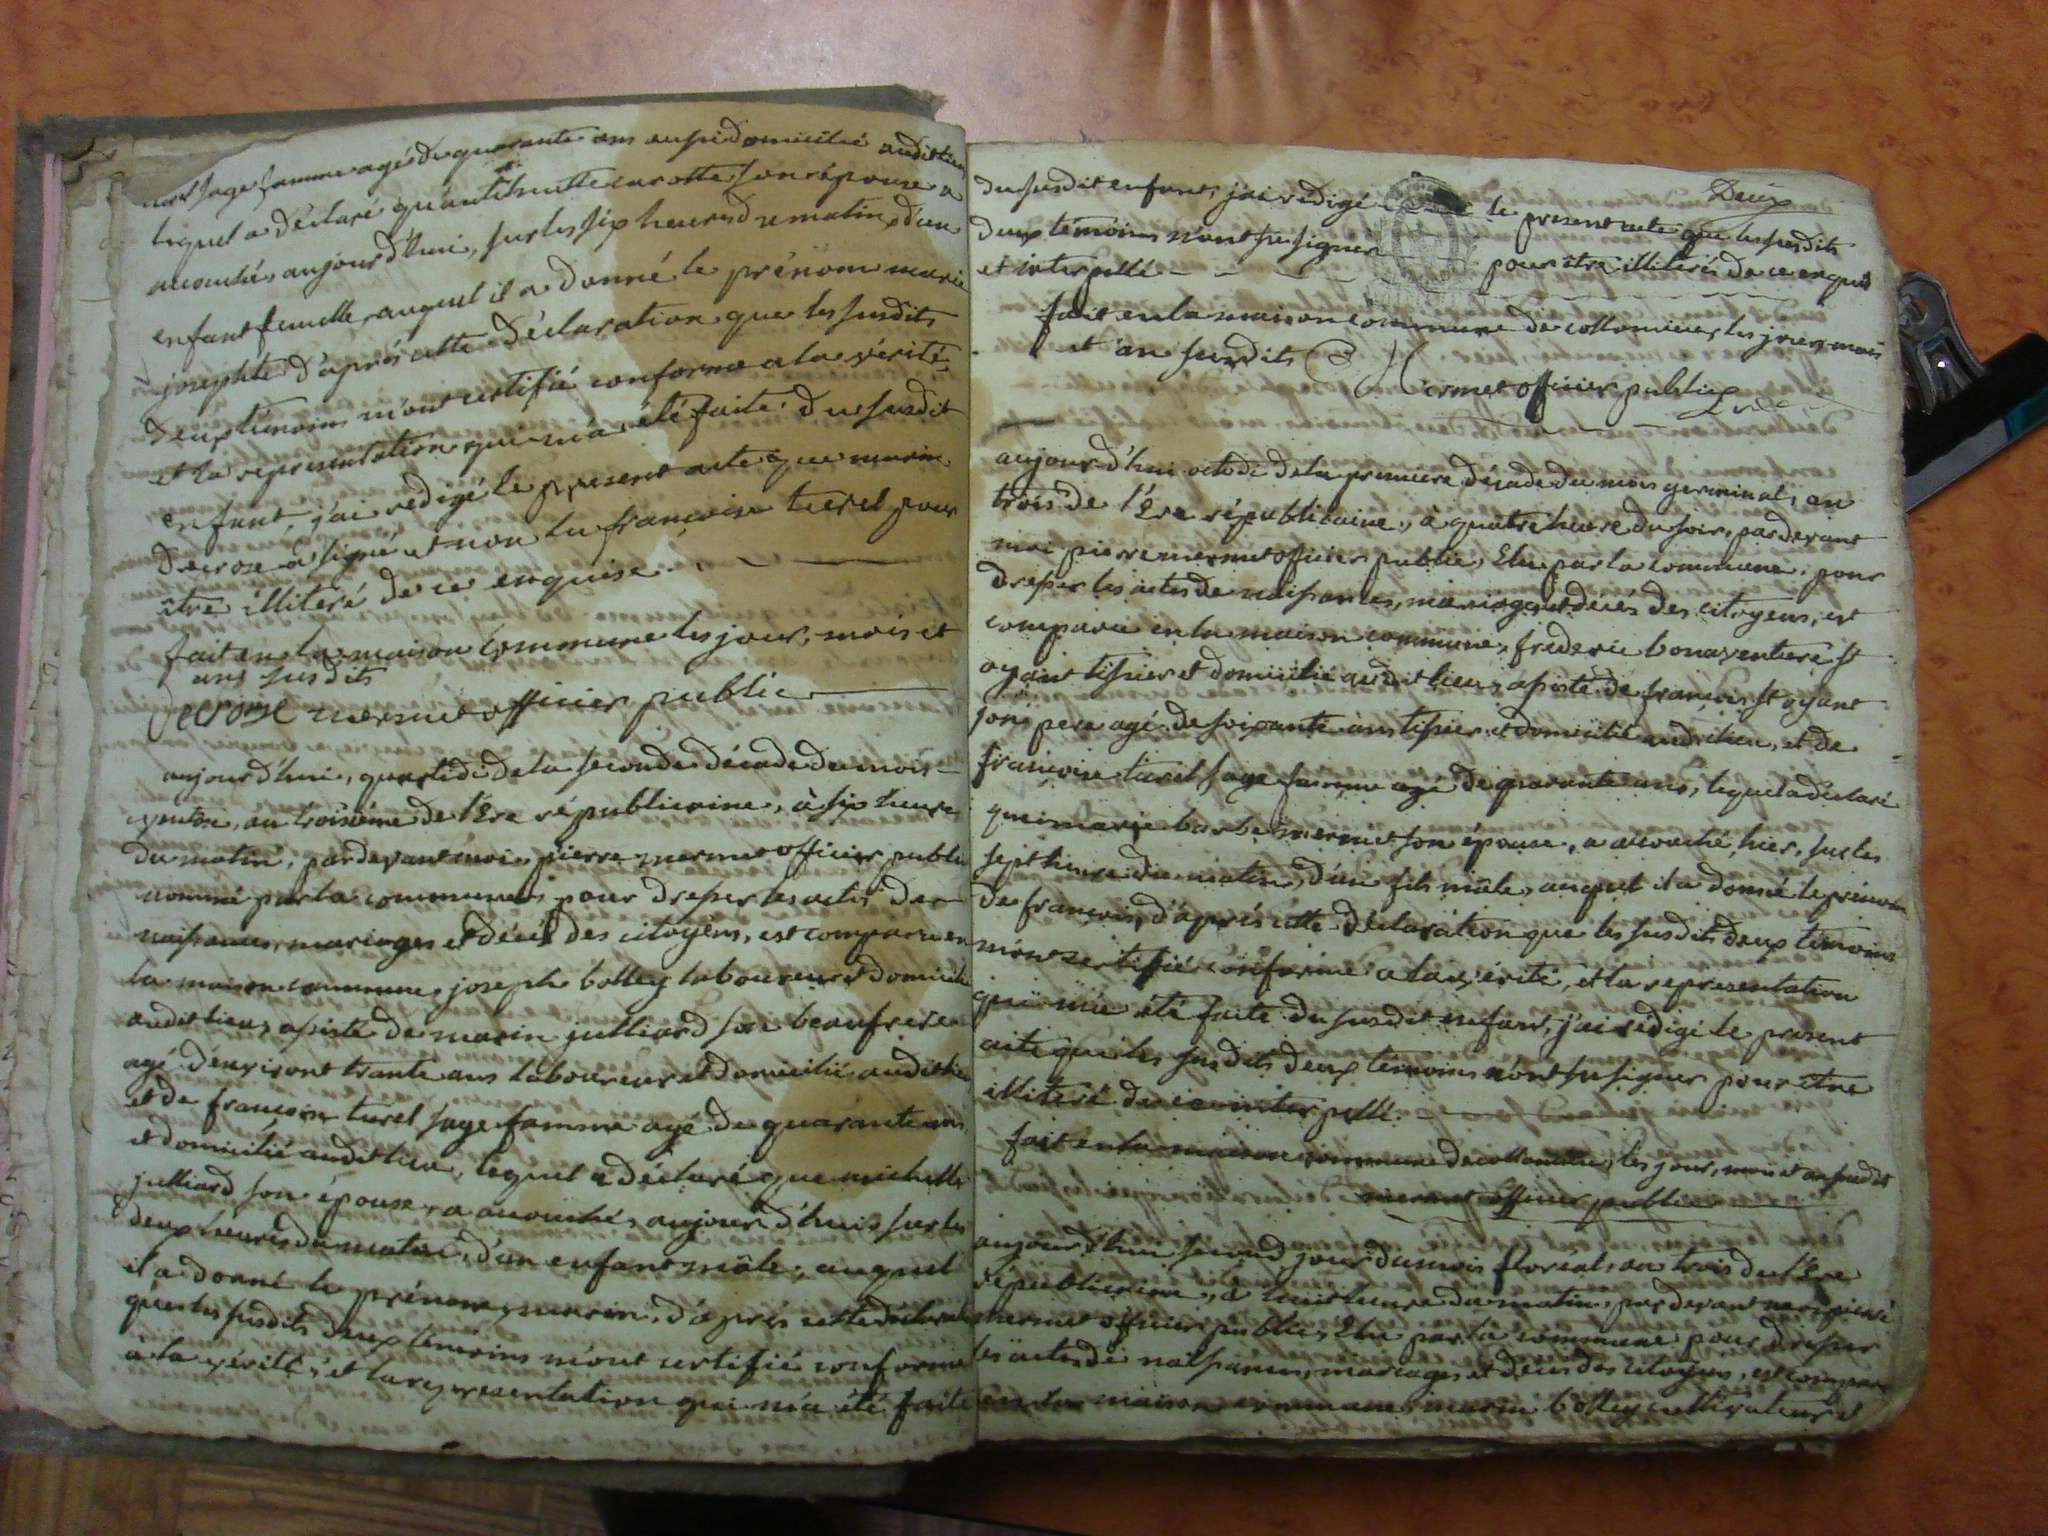 sage famme agée de quarante ans aussi domicilié audit lieu
lequel a déclaré qu'antilhuitte carotte son épouse a
accouchés, aujourd'hui, sur les six heures du matin, d'un
enfant femelle, auquel il a donné le prénom marie
josephte d'après cette déclaration que les susdits
deux témoins m'ont certifié conforme a la vérité,
et la representation qui m'a été faite du susdit
enfant, j'ai rédigé le present acte que marin
decroze a signé et non la françoise turel pour
être illiteré de ce enquise
fait en la maison commune les jour, mois et
ans susdits
Decroze mermet officier public
aujourd'hui, quartidi de la seconde décade du mois
ventôse, an troisième de l'Ere républicaine, à six heures
du matin, pardevant moi pierre mermet officier public
nommé par la commune, pour dresser les actes de
naissances, mariages et décès des citoyens, est comparu en
la maison commune, joseph bolley laboureur et domicilié
audit lieu, assisté de marin julliard son beaufrere
agé d'environt trante ans laboureur et domicilié audit lieu
et de francoise turel sage famme agé de quarante ans
et domicilié audit lieu, lequel a déclaré que michelle
julliard son épouse, a accouchés, aujourd'hui sur les
deux heures du matin, d'un enfant mâle, auquel
il a donné le prénom, marin, d'après cette déclaration
que les susdits deux témoins m'ont certifié conforme
à la vérité, et la representation qui m'a été faite
Deux
du susdit enfant, j'ai rédigé le present acte que les susdits
deux témoins n'ont su signer pour être illiterés de ce enquis
et interpellé
fait en la maison commune de collomieu, les jour, mois
et an susdits
Mermet officier public
aujourd'hui octodi de la premiere décade du mois germinal, an
trois de l'Ere républicaine, à quatre heure du soir, pardevant
moi pierre mermet officier public, Elu par la commune, pour
dresser les actes de naissances, mariages et décès des citoyens, est
comparu en la maison commune, frederic bonaventure st
oyant tissier et domicilié audit lieu, assisté de francois st oyant
son pere agé de soixante ans tissier et domicilié audit lieu, et de
francoise turel sage famme agé de quarante ans, lequel a déclaré
que marie barbe mermet son épouse, a accouché, hier, sur les
sept heure du matin, d'un fils mâle, auquel il a donné le prénom
de francois, d'après cette déclaration que les susdits deux témoins
m'ont certifié conforme a la vérité, et la representation
qui m'a été faite du susdit enfant, j'ai rédigé le present
acte que les susdits deux témoins n'ont su signer pour être
illiteré de ce interpellé
fait en la maison commune de collomieu, les jour, mois et an susdit
mermet officier public
aujourd'hui second jour du mois floréal, an trois de l'Ere
républicaine, à huit heure du matin, pardevant moi pierre
mermet officier public, Elu par la commune pour dresser
les actes de naissances, mariages et décès des citoyens, est comparu
en la maison commune, marin bolley cultivateur et